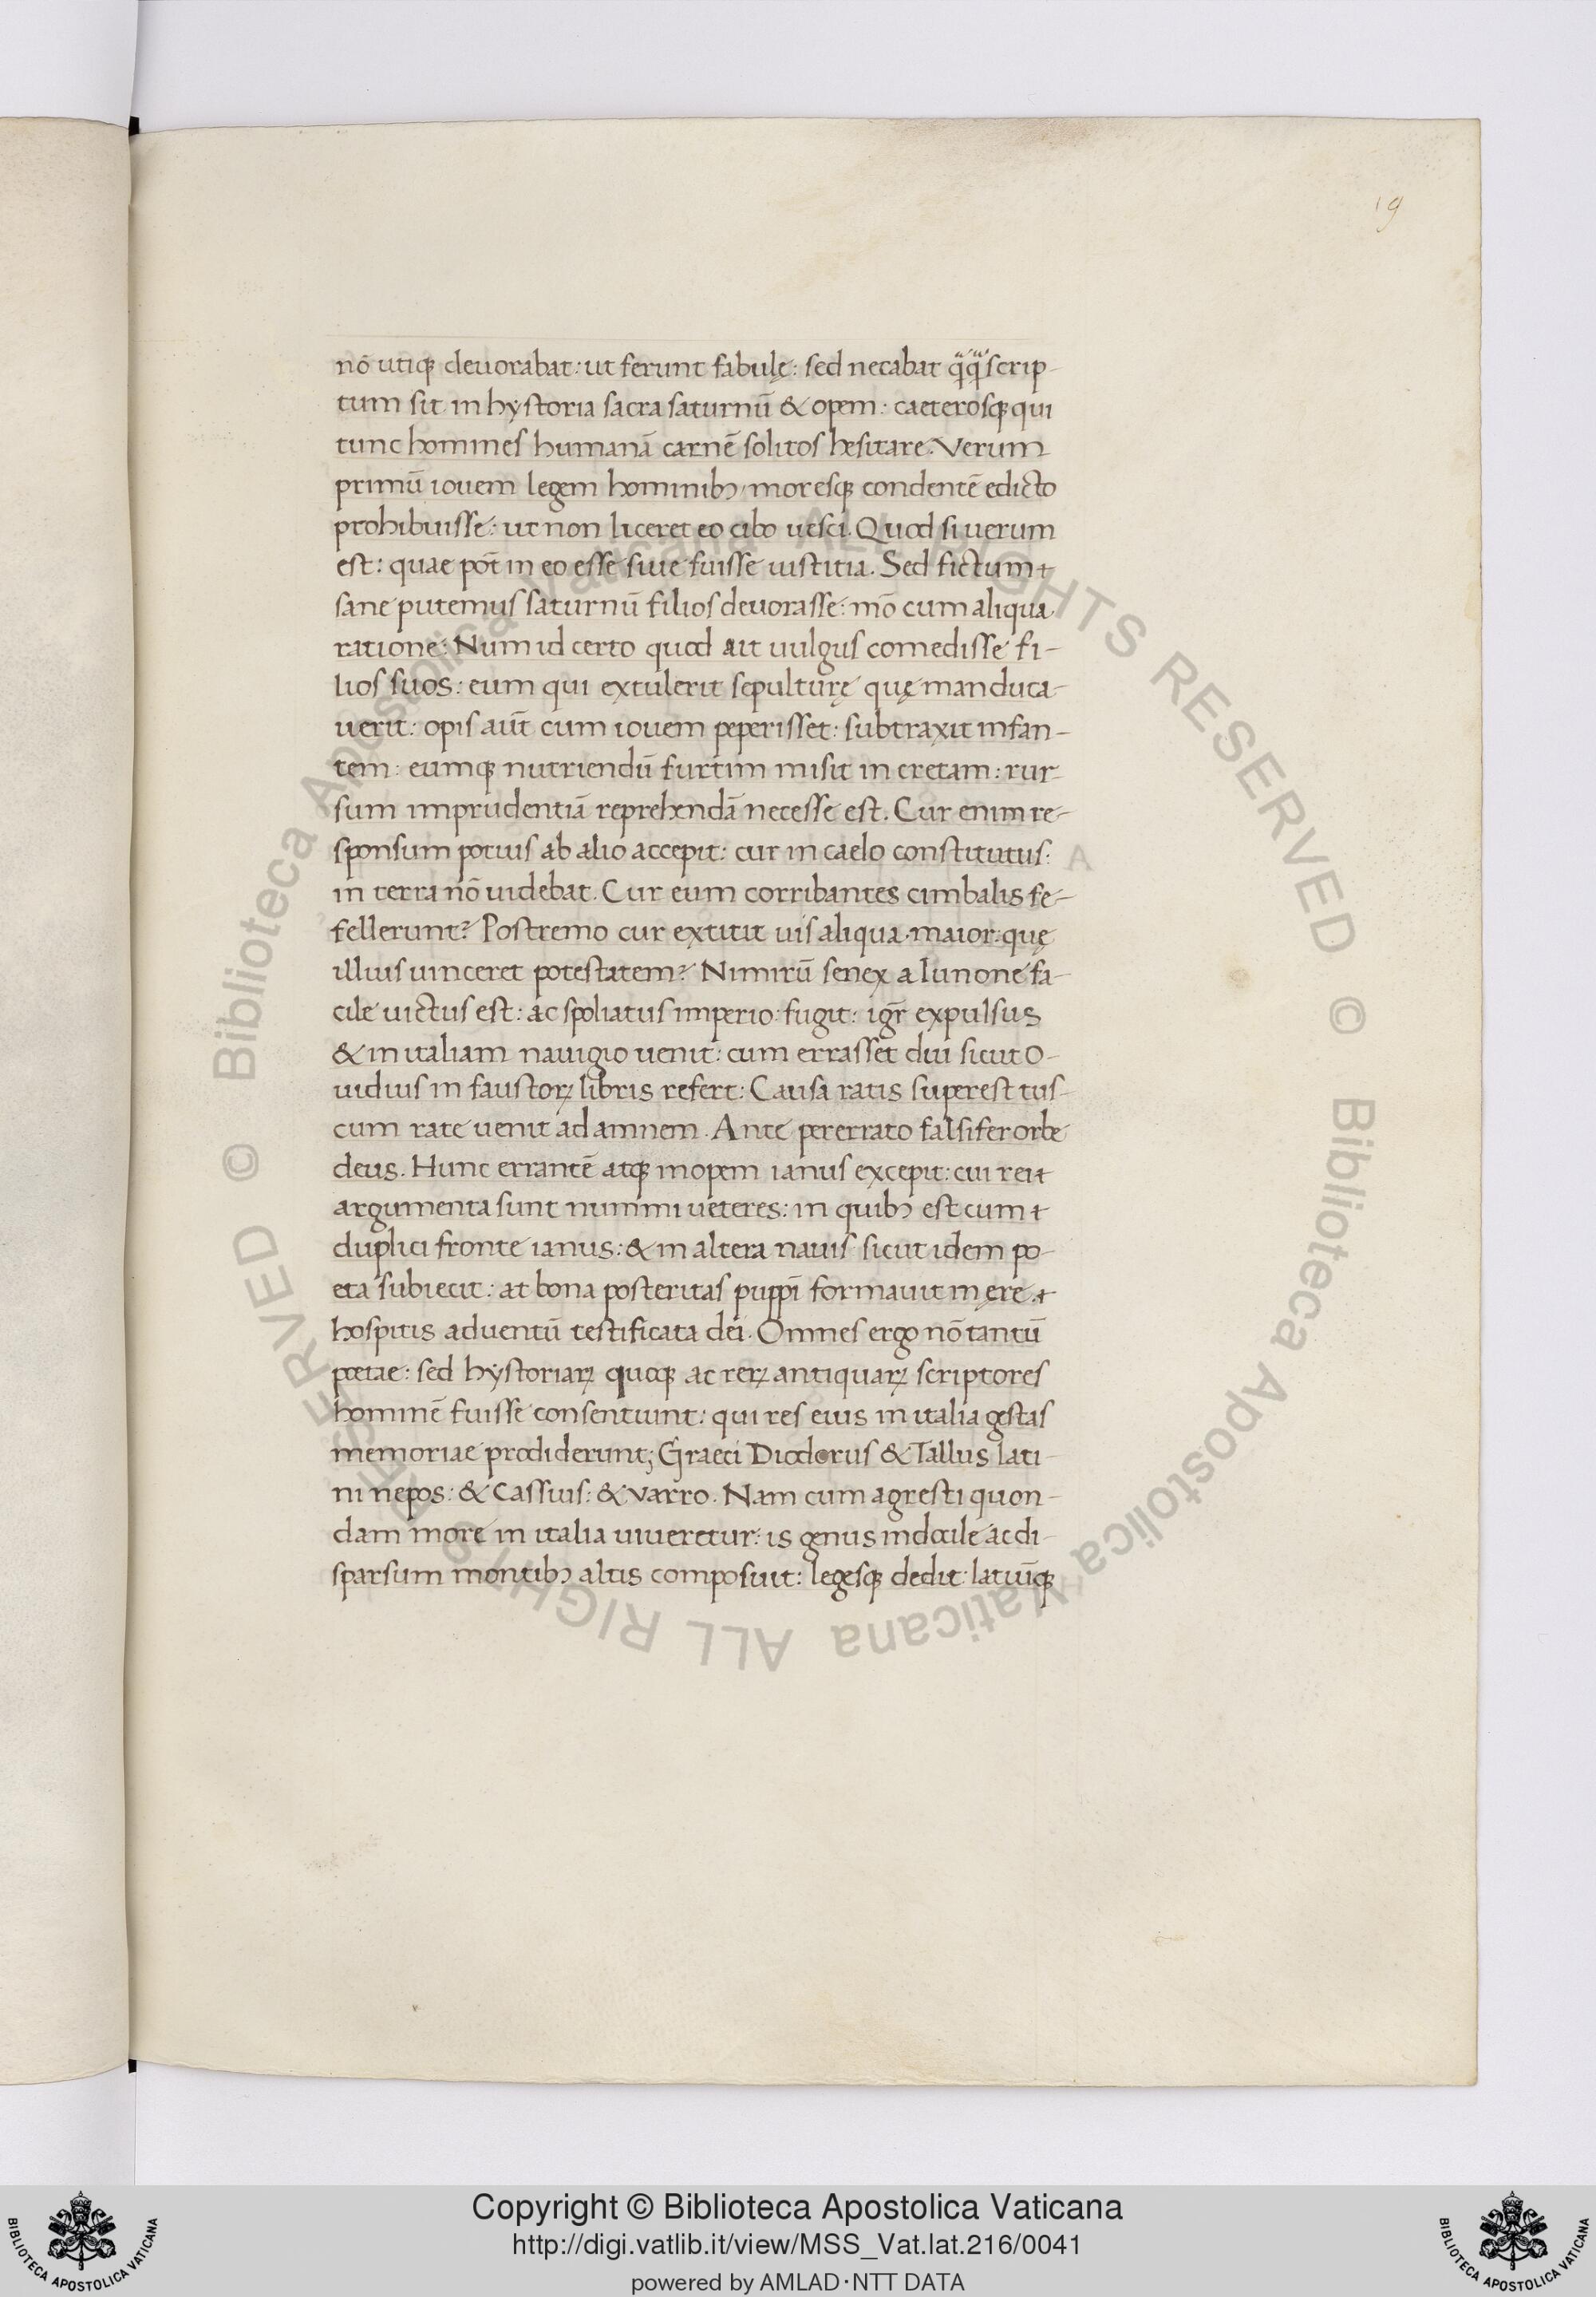 19
nō utiqꝫ deuorabat: ut ferunt fabulę: sed necabat q̈q̈ scrip-
tum sit in hystoria sacra saturnū & opem: caeterosqꝫ qui
tunc homines humanā carnē solitos hesitare. Verum
primū iouem legem hominibꝫ moresqꝫ condentē edicto
prohibuisse: ut non liceret eo cibo uesci. Quod si uerum
est: quae pōt in eo esse siue fuisse iustitia. Sed fictum
sane putemus saturnū filios deuorasse: mō cum aliqua
ratione: Num id certo quod ait uulgus comedisse fi-
lios suos: eum qui extulerit sepulturę quę manduca-
uerit: opis aūt cum iouem peperisset: subtraxit infan-
tem: eumqꝫ nutriendū furtim misit in cretam: rur-
sum imprudentiā reprehendā necesse est. Cur enim re-
sponsum potius ab alio accepit: cur in caelo constitutus:
in terra nō uidebat. Cur eum corribantes cimbalis fe-
fellerunt? Postremo cur extitit uis aliqua maior: quę
illius uinceret potestatem? Nimirū senex a Iunone fa-
cile uictus est: ac spoliatus imperio: fugit: igr̄ expulsus
& in italiam nauigio uenit: cum errasset diu sicut O-
uidius in faustoꝝ libris refert: Causa ratis superest tus-
cum rate uenit ad amnem. Ante pererrato falsifer orbe
deus. Hunc errantē atqꝫ inopem ianus excepit: cui rei
argumenta sunt nummi ueteres: in quibꝫ est cum
duplici fronte ianus: & in altera nauis sicut idem po-
eta subiecit: at bona posteritas puppī formauit in ęre
hospitis aduentū testificata dei. Omnes ergo nō tantū
poetae: sed hystoriaꝝ quoqꝫ ac reꝝ antiquaꝝ scriptores
hominē fuisse consentiunt: qui res eius in italia gestas
memoriae prodiderunt; Graeci Diodorus & Tallus lati-
ni nepos: & Cassius: & varro. Nam cum agresti quon-
dam more in italia uiueretur: is genus indocile ac di-
sparsum montibꝫ altis composuit: legesqꝫ dedit: latiūqꝫ
© Biblioteca Apostolica Vaticana ALL RIGHTS RESERVED © Biblioteca Apostolica Vaticana ALL RIGHTS RESERVED
Copyright © Biblioteca Apostolica Vaticana
http://digi.vatlib.it/view/MSS_Vat.lat.216/0041
powered by AMLAD·NTT DATA
BIBLIOTECA APOSTOLICA VATICANA
BIBLIOTECA APOSTOLICA VATICANA